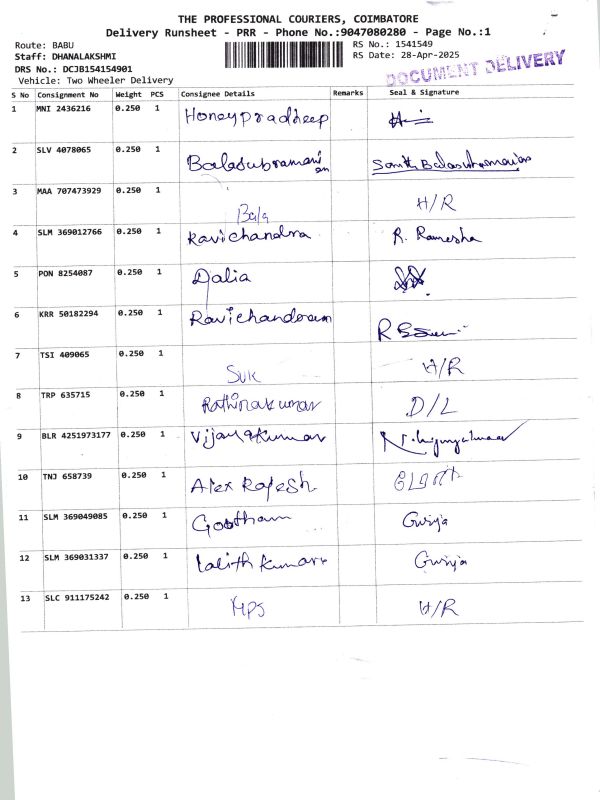 THE PROFESSIONAL COURIERS, COIMBATORE
Delivery Runsheet - PRR - Phone No.:9047080280 - Page No.:1
Route: BABU
RS No.: 1541549
Staff: DHANALAKSHMI
RS Date: 28-Apr-2025
DRS No.: DCJB154154901
DOCUMENT DELIVERY
Vehicle: Two Wheeler Delivery
S No Consignment No Weight PCS Consignee Details Remarks Seal & Signature
1 MNI 2436216 0.250 1 Honeypradheep
2 SLV 4078065 0.250 1 Balasubramanian
3 MAA 707473929 0.250 1 Bala H/R
4 SLM 369012766 0.250 1 Ravichandra R. Ramesha
5 PON 8254087 0.250 1 Dalia
6 KRR 50182294 0.250 1 Ravichandran
7 TSI 409065 0.250 1 Suk H/R
8 TRP 635715 0.250 1 Rathinakumar D/L
9 BLR 4251973177 0.250 1 Vijayakumar
10 TNJ 658739 0.250 1 Alex Rajesh
11 SLM 369049085 0.250 1 Gowtham Girija
12 SLM 369031337 0.250 1 Lalith Kumar Girija
13 SLC 911175242 0.250 1 MPS H/R